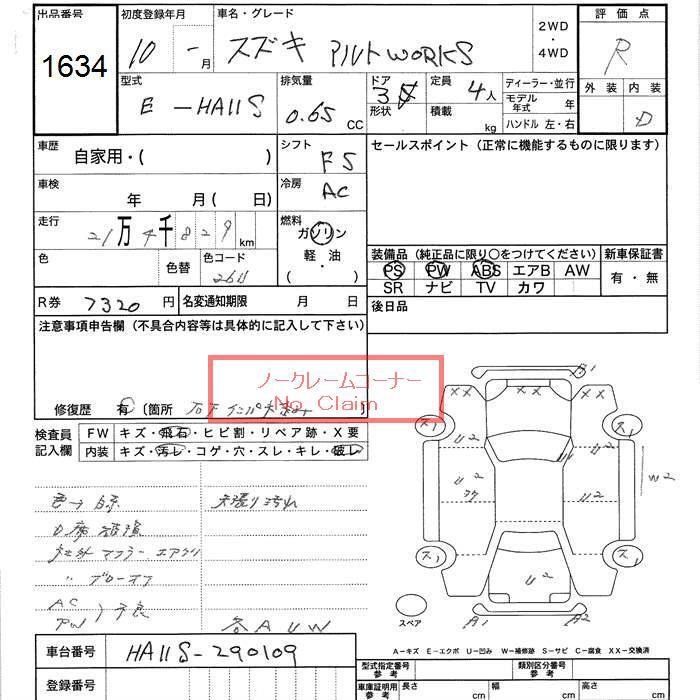 出品番号 初度登録年月 車名・グレード 2WD・4WD 評価点
1634 10 - 月 スズキ アルトWORKS R
型式 排気量 ドア形状 定員 ディーラー・並行 外装 内装
E - HA11S 0.65 CC 3 4人 モデル年式 年 D
積載 kg ハンドル 左・右
車歴 自家用・( ) シフト F5 セールスポイント(正常に機能するものに限ります)
車検 年 月(日) 冷房 AC
走行 21万4千829km 燃料 ガソリン 軽油 ( )
色 色替 色コード 26U 装備品(純正品に限り○をつけてください) 新車保証書
PS PW ABS エアB AW 有・無
SR ナビ TV カワ
R券 7320円 名変通知期限 月 日 後日品
注意事項申告欄(不具合内容等は具体的に記入して下さい)
ノークレームコーナー
No Claim
修復歴 有 (箇所 )
検査員記入欄 FW キズ・飛石・ヒビ割・リペア跡・X要
内装 キズ・汚レ・コゲ・穴・スレ・キレ・破レ
色→ 天張り汚れ
D席破損
社外マフラー エアクリ
〃 ブローオフ
AC
PW)不良
各AUW
A1
XX XX XX
ス1 ス1
U2 U2
U2 U2 W2
ス1 ス1
U2
スペア A1 A2
A-キズ E-エクボ U-凹み W-補修跡 S-サビ C-腐食 XX-交換済
車台番号 HA11S-290109
型式指定番号 参考 類別区分番号 参考
登録番号 車庫証明用 参考 長さ cm 幅 cm 高さ cm